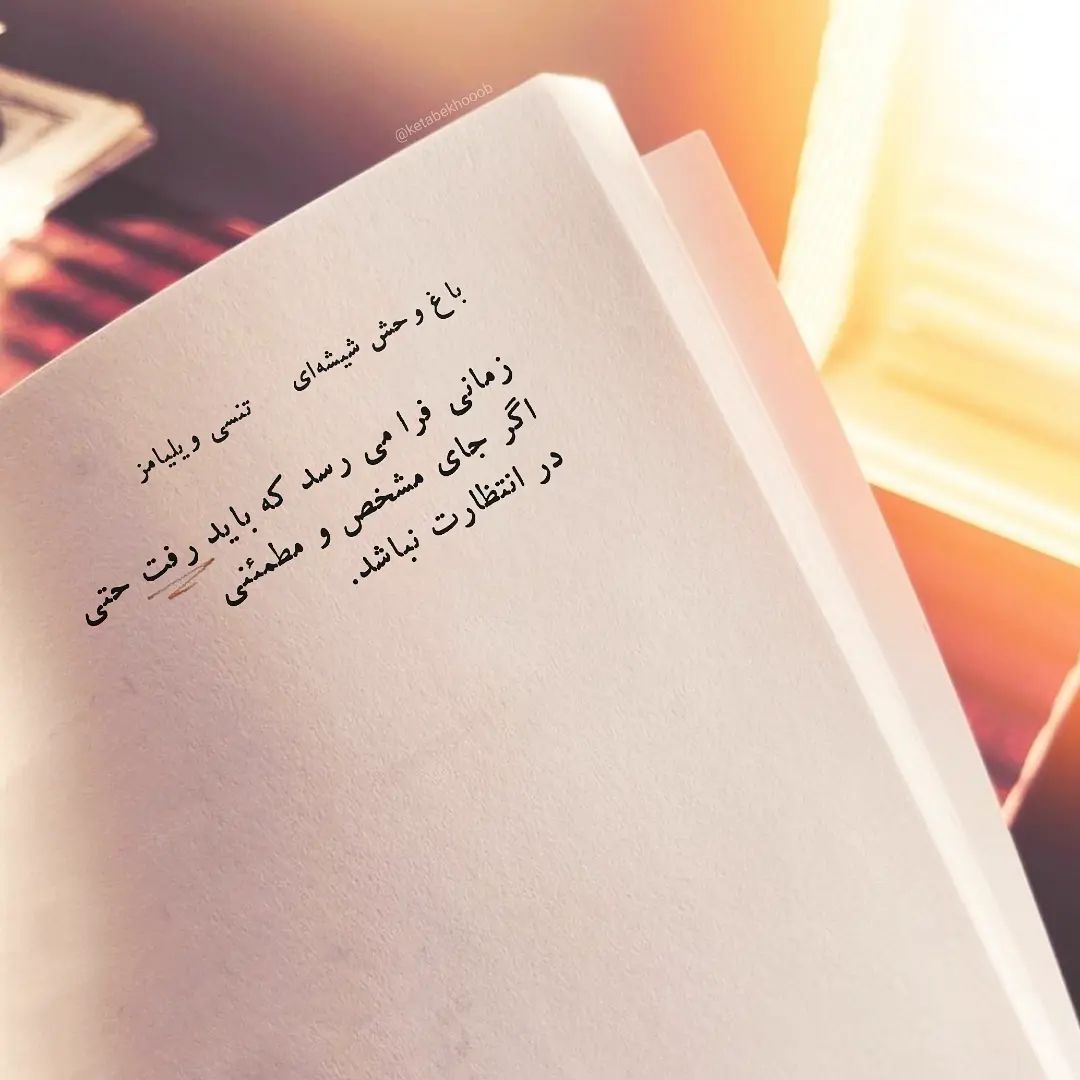 @ketabekhooob
باغ وحش شیشه‌ای تنسی ویلیامز
زمانی فرا می رسد که باید رفت حتی
اگر جای مشخص و مطمئنی
در انتظارت نباشد.